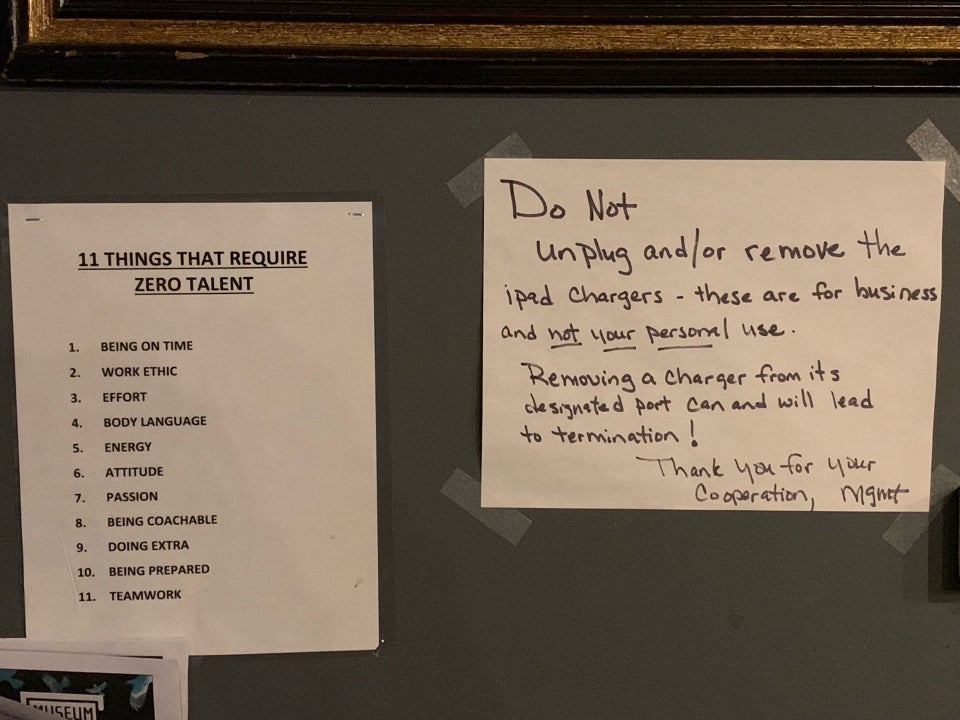 11 THINGS THAT REQUIRE
ZERO TALENT
1. BEING ON TIME
2. WORK ETHIC
3. EFFORT
4. BODY LANGUAGE
5. ENERGY
6. ATTITUDE
7. PASSION
8. BEING COACHABLE
9. DOING EXTRA
10. BEING PREPARED
11. TEAMWORK
Do Not
unplug and/or remove the
ipad chargers - these are for business
and not your personal use.
Removing a charger from its
designated port can and will lead
to termination!
Thank you for your
Cooperation, Mgmt
MUSEUM